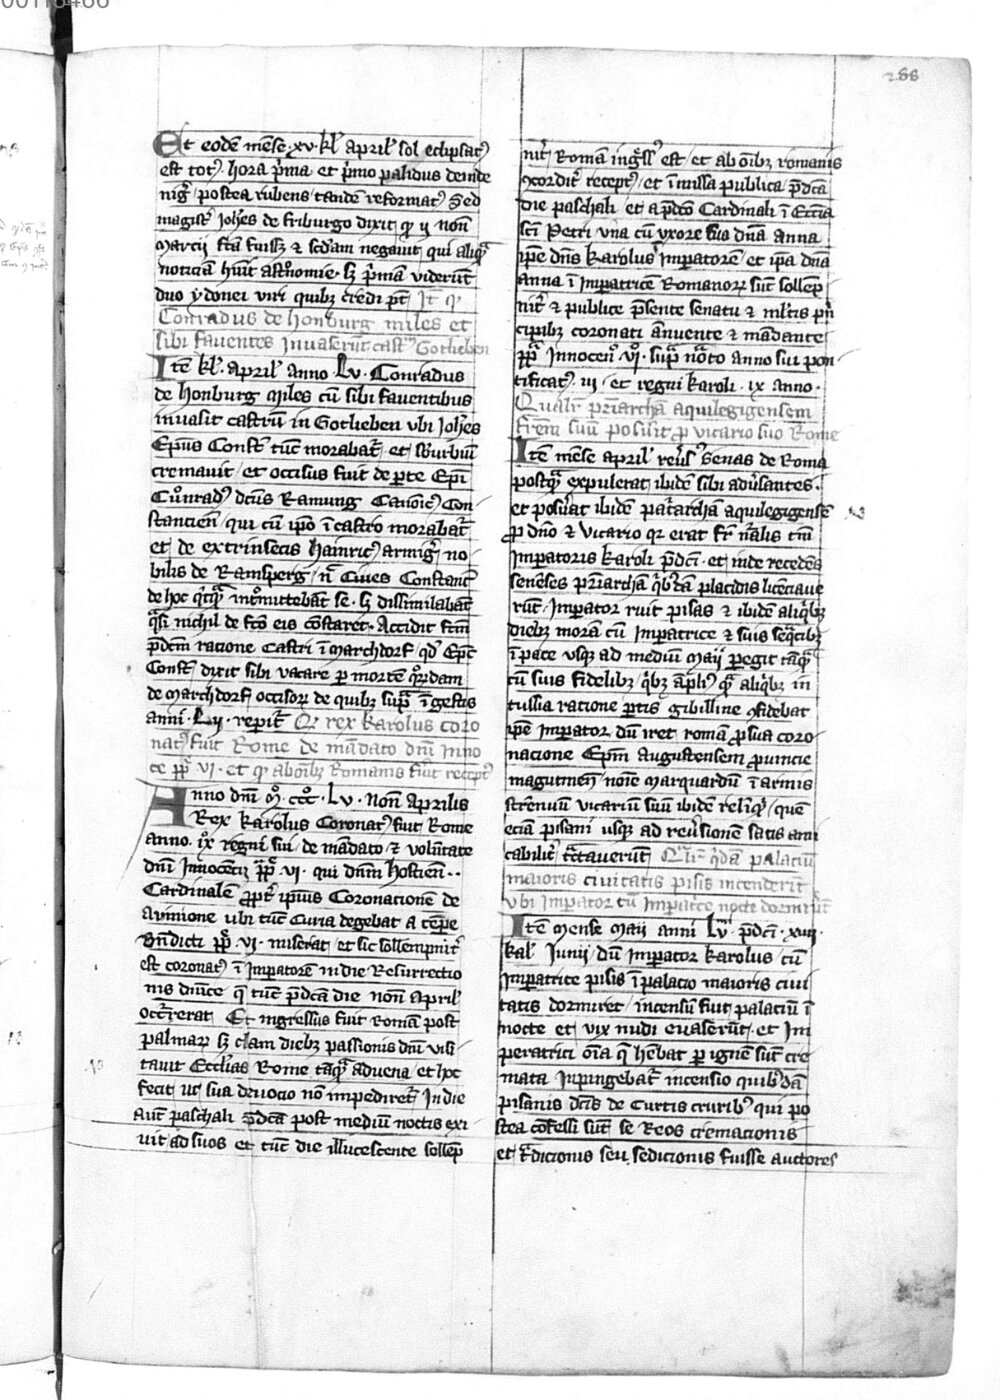 288
Et eodē mēse xv kl' april' sol eclipsat᷒
est tot᷒ hora p̄ma et p̄mo palidus deinde
nig᷒ postea rubens tandē reformat᷒ Sed
magist᷒ Joh̄es de friburgo dixit qͥ ij non
Marcii fc̄a fuisse ⁊ scd̄am negauit qui aliqͣ
noticiā hūit ast᷒nomie sꝫ p̄mā viderūt
duo ydonei viri quibꝫ credi pt̄ Jt̄ qͥ
Conradus de honburg miles et
sibi fauentes Jnuaserūt cast᷒ Gotlieben
Jtē kl' april' anno Lv Conradus
de honburg Miles cū sibi fauentibus
inuasit castrū in Gotlieben vbi Joh̄es
Ep̄us Const̄ tūc morabat᷒ et sb᷒urbiū
cremauit et occisus fuit de p̱te Ep̄i
Cůnrad᷒ dc̄us Ramung Canoic᷒ Con
stancien̄ qui cū ip̄o ī castro morabat᷒
et de extrinsecis hainric᷒ armig᷒ no
bilis de Ramsperg nͣ Ciues Constanc̄
de hoc q̄tqͣ int᷒mittebāt se sꝫ dissimilabāt
qͣsi nichil de fc̄o eis cōstaret Accidit fc̄m
p̄dc̄m racione Castri ī Marchdorf qd̄ Ep̄c
Const̄ dixit sibi vacare p̱ mortē qͦrdam
de Marchdorf occisoꝝ de quibꝫ supͣ ī gestis
anni Lij reperit᷒ Qͥ rex karolus coro
nat᷒ fuit Rome de mādato dn̄i Jnno
cē pp̄ vi et qͥ ab oībꝫ Romanis fuit recept᷒
Anno dn̄i Mͦ cccͦ Lv Non̄ Aprilis
Rex karolus Coronat᷒ fuit Rome
anno ix regni sui de mādato ⁊ volūtate
dn̄i Jnnocencii pp̄ vi qui dn̄m hostien̄
Cardinalē ꝓpt᷒ ip̄ius Coronacionē de
Auinione vbi tūc Curia degebat a tēpe
Bn̄dicti pp̄ vi miserat et sic sollempnit᷒
est coronat᷒ ī Jmperatorē in die Resurrectio
nis dnīce q̄ tūc p̄dcā die non̄ April'
occ᷒rerat Et ingressus fuit Romā post
palmaꝝ sꝫ clam diebꝫ passionis dn̄i visi
tauit Eccl̄ias Rome tāqͣ aduena et hoc
fecit ut sua deuocio nō impediret᷒ Jn die
aut̄ paschali p̄dcā post mediū noctis exi
uit ad suos et tūc die illucescente sollep̄
nit᷒ Romā ing᷒ss᷒ est et ab oībꝫ romanis
ꝯcordit᷒ recept᷒ et ī missa publica p̄dcā
die paschali et a p̄dc̄o Cardinali ī Ecc̄ia
sc̄i Petri vna cū vxore sua dn̄a anna
ip̄e dn̄s karolus Jmperatorē et ip̄a dn̄a
anna ī Jmpatricē Romanoꝝ sūt sollep̄
nit᷒ ⁊ publice p̄sente senatu ⁊ ml̄tis pn̄
cipibꝫ coronati ānuente ⁊ mādante
pp̄ Jnnocen̄ vͦi supͣ nōto anno sui pon
tificat᷒ iij et regni karoli ix anno
Qualit᷒ pr̄iarchā aquilegigensem
frēm suū posuit ꝓ vicario suo Rome
Jtē mēse april' reu᷒s᷒ Senas de Roma
postqͣ expulerat ibidē sibi adu᷒santes
et posuerat ibidē pat᷒archā aquilegigensē
ꝓ dn̄o ⁊ vicario qͥ erat fr̄ nͣalis tm̄
Jmperatoris karoli p̄dc̄i et inde recedēs
senēses pr̄iarchā qͥbꝰdā placidis licenciaue
rūt Jmperator iuit pisas ⁊ ibidē aliqͥbꝫ
diebꝫ morā cū Jmperatrice ⁊ suis seqͣcibꝫ
ī pace usqꝫ ad mediū maij p̱egit tāqͣ
cū suis fidelibꝫ qͥbꝫ āpli᷒ qͣ aliqͥbꝫ in
tussia racione p̱tis gibilline ꝯfidebat
ip̄e Jmperator dū iret romā ꝓ sua coro
nacione Ep̄m augustensem ꝓuincie
magutinen̄ noīe Marquardū ī armis
strenuū vicariū suū ibidē reliqͥt quē
eciā pisani usqꝫ ad reu᷒sionē satis ami
cabilit᷒ t᷒ctauerūt Qͣlit᷒ qͥdā palaciū
maioris ciuitatis pisis incenderūt
vbi Jmperator cū Jmperatce nocte dormiūt
Jtē Mense Maij anni Lv p̄dc̄i xiiij
kal' Junij dū Jmperator karolus cū
Jmperatrice pisis ī palacio maioris ciui
tatis dormiret incensū fuit palaciū ī
nocte et vix nudi euaserūt et Jm
peratrici oīa q̄ hēbat p̱ ignē sūt cre
mata Jnpingebat᷒ incensio quibꝰdā
pisanis dc̄is de Curtis cruribꝰ qui po
stea cōfessi sūt se Reos cremacionis
et t᷒dicionis seu sedicionis fuisse auctores